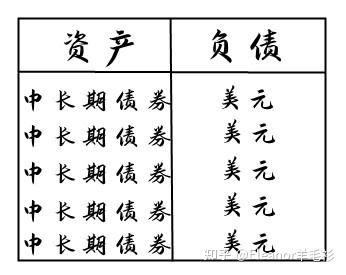 资产 负债
中长期债券 美元
中长期债券 美元
中长期债券 美元
中长期债券 美元
中长期债券 美元
知乎 @Eleanor羊毛衫